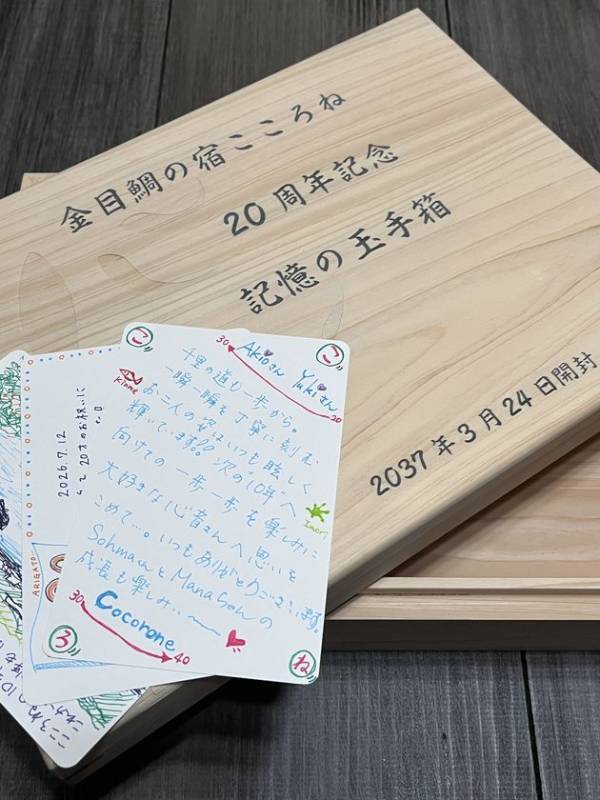 金目鯛の宿こころね
20周年記念
記憶の玉手箱
2037年3月24日開封
こ
こ
30
Akioさん
Yukiさん
20
Kinme
千里の道も一歩から。
一瞬一瞬を丁寧に刻む
お二人の姿はいつも眩しく
輝いています!! 次の10年へ
向けての一歩一歩を楽しみに
大好きな心音さんへ思いを
こめて…。いつもありがとうございます。
SohmaくんとManaちゃんの
成長も楽しみ…
Imori
30
Cocorone
40
ろ
ね
2026.7.12
20才のお祝いに
ARIGATO